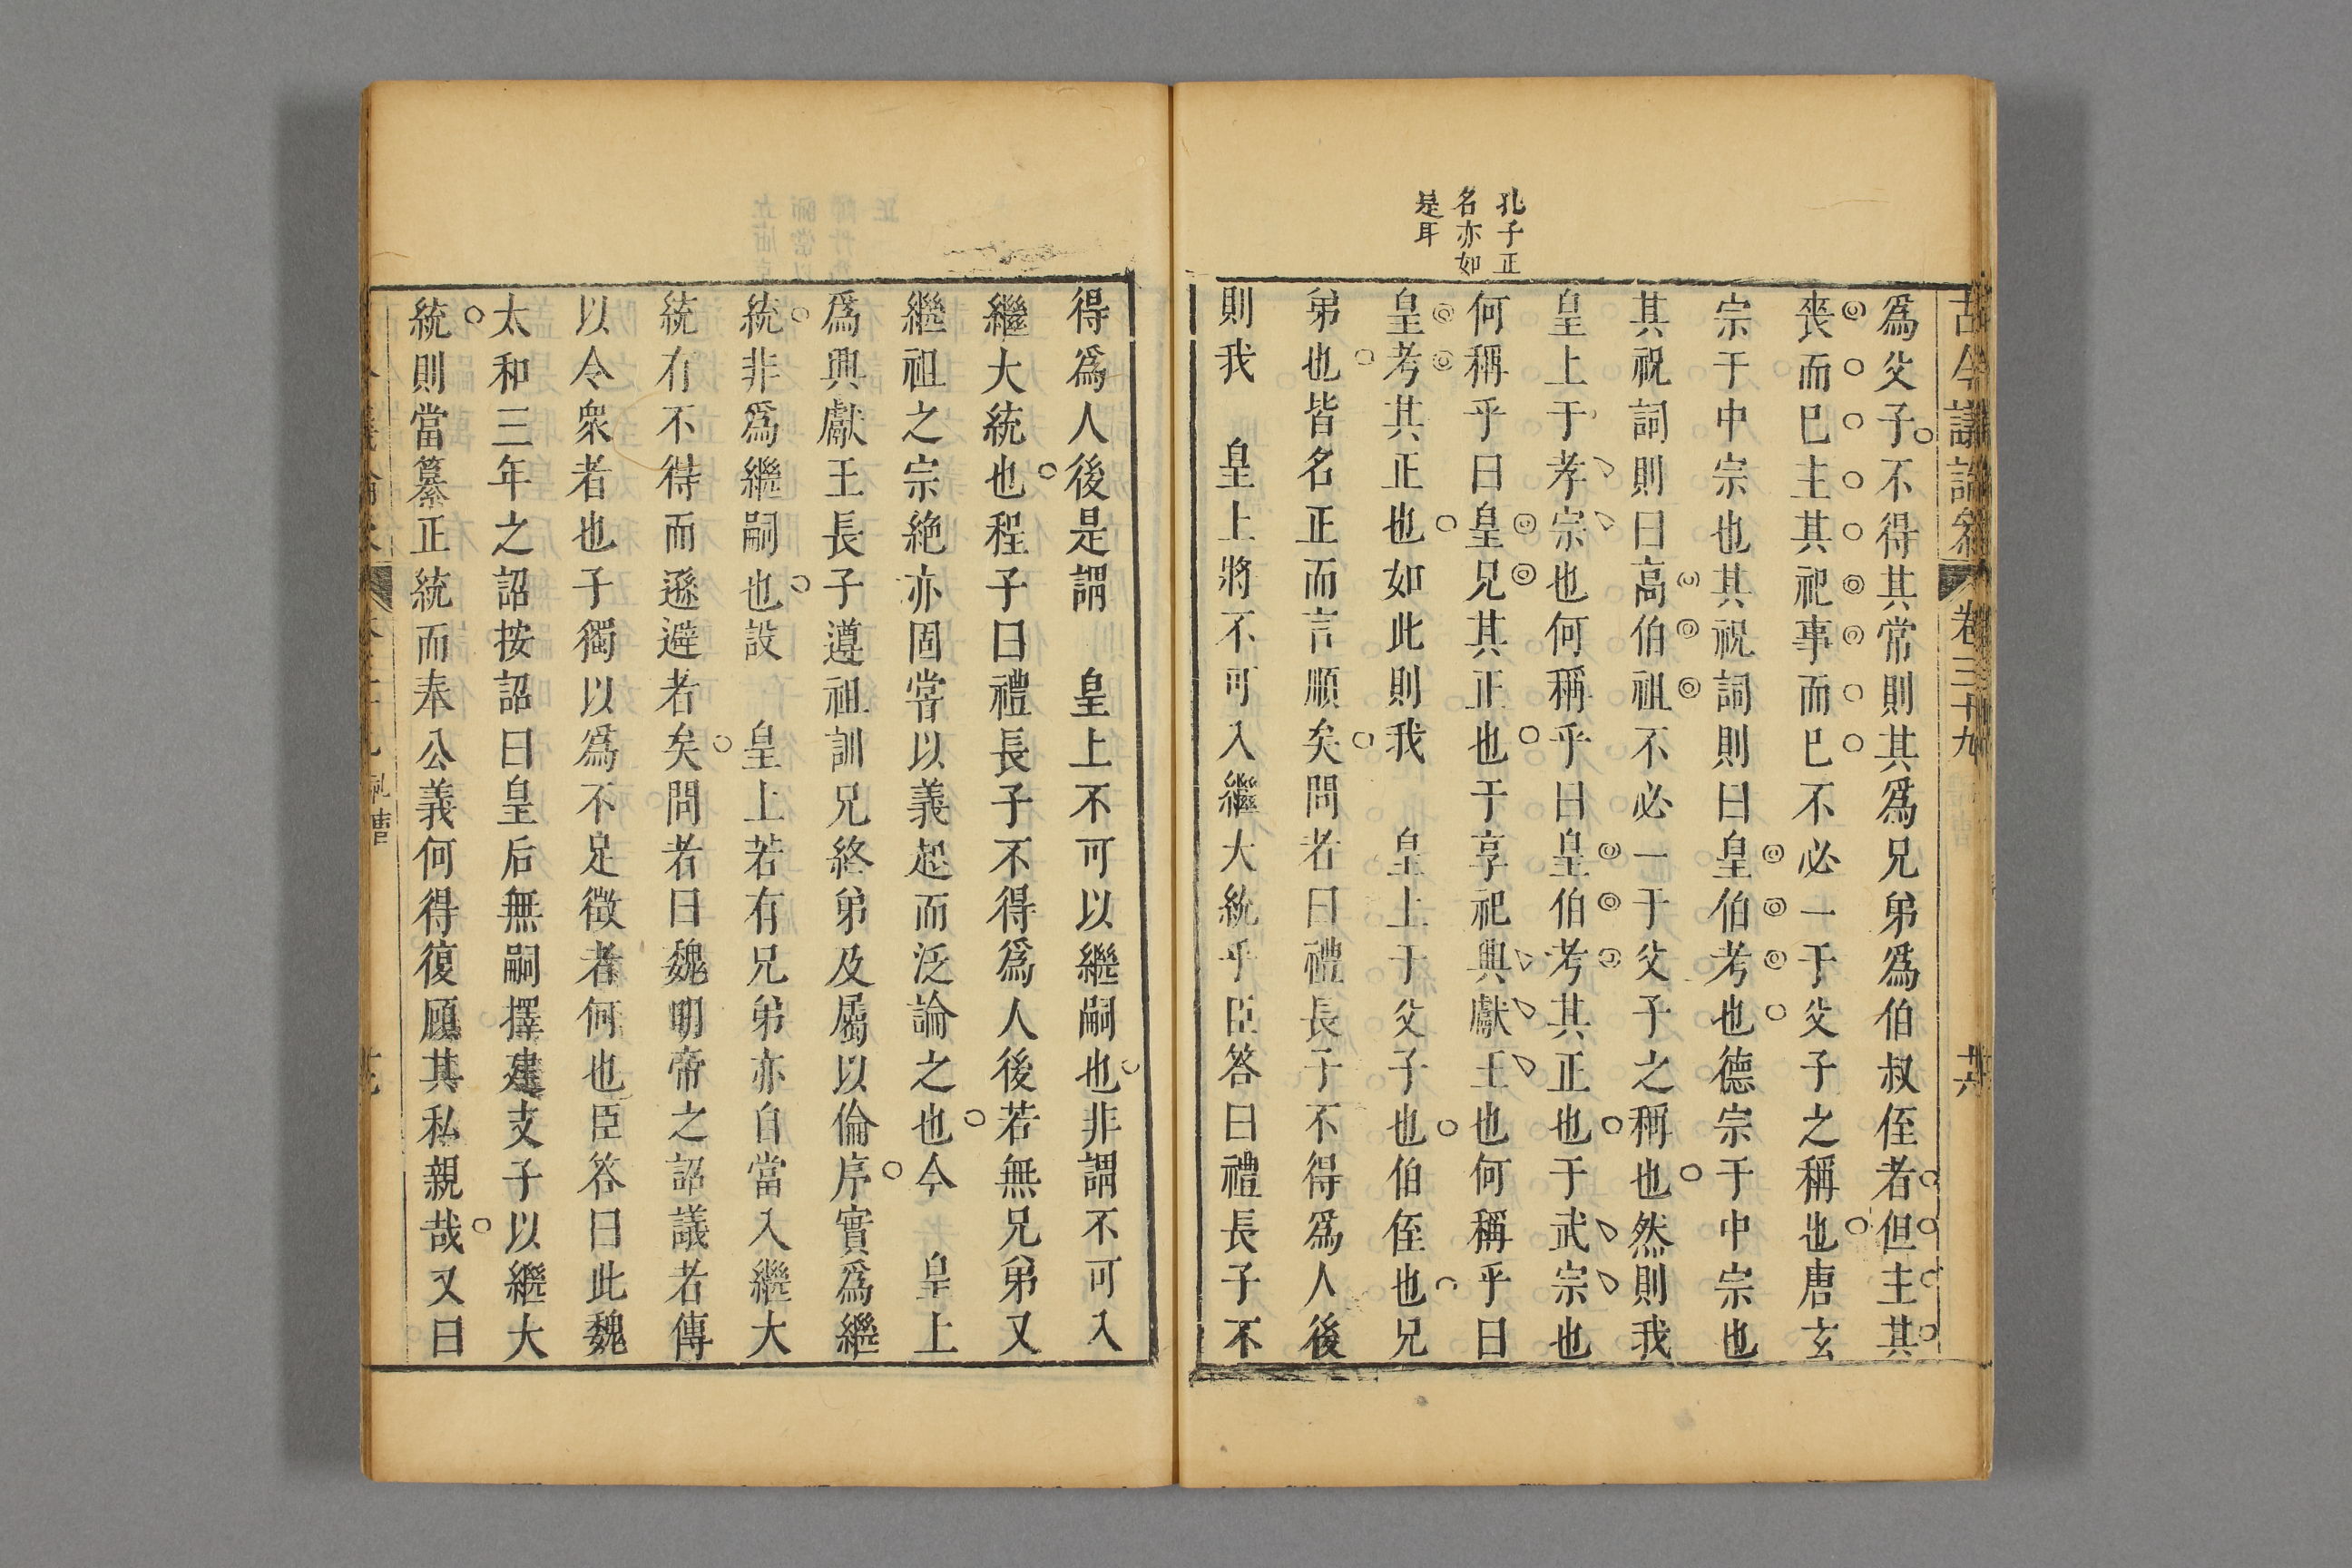 古今議論叅 卷三十九 十六
孔子正
名亦如
是耳
爲父子不得其常則其爲兄弟爲伯叔侄者但主其
喪而巳主其祀事而巳不必一于父子之稱也唐玄
宗于中宗也其祝詞則曰皇伯考也德宗于中宗也
其祝詞則曰高伯祖不必一于父子之稱也然則我
皇上于孝宗也何稱乎曰皇伯考其正也于武宗也
何稱乎曰皇兄其正也于享祀興獻王也何稱乎曰
皇考其正也如此則我 皇上于父子也伯侄也兄
弟也皆名正而言順矣問者曰禮長子不得爲人後
則我 皇上將不可入繼大統乎臣答曰禮長子不
得爲人後是謂 皇上不可以繼嗣也非謂不可入
繼大統也程子曰禮長子不得爲人後若無兄弟又
繼祖之宗絶亦固當以義起而泛論之也今 皇上
爲興獻王長子遵祖訓兄終弟及屬以倫序實爲繼
統非爲繼嗣也設 皇上若有兄弟亦自當入繼大
統有不待而遜避者矣問者曰魏明帝之詔議者傳
以令衆者也子獨以爲不足徴者何也臣答曰此魏
太和三年之詔按詔曰皇后無嗣擇建支子以繼大
統則當纂正統而奉公義何得復顧其私親哉又曰